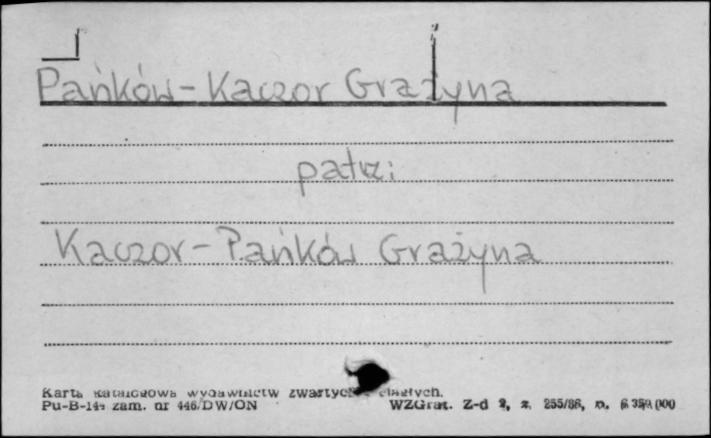 Pańków-Kaczor Grażyna
patrz:
Kaczor-Pańków Grażyna
Karta katalogowa wydawnictw zwartych ciągłych.
Pu-B-14 zam. nr 446/DW/ON WZGraf. Z-d 2, z. 255/86, n.